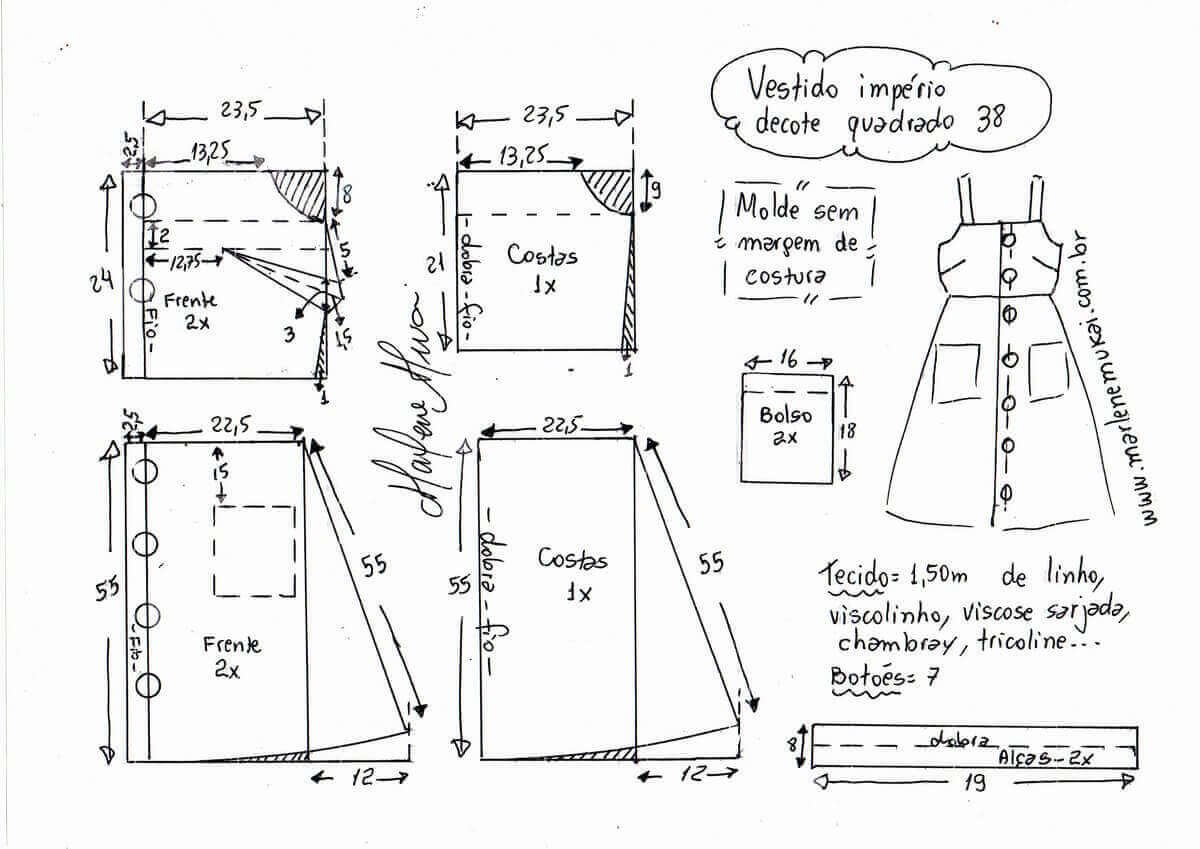 Vestido império
decote quadrado 38
Molde sem
margem de
costura
www.marlenemukai.com.br
23,5
2,5
13,25
8
2
5
12,75
24
Frente
2x
Fio
3
1,5
1
23,5
13,25
9
21
dobra - fio
Costas
1x
1
2,5
22,5
15
55
55
Fio
Frente
2x
12
22,5
55
dobra - fio
Costas
1x
55
12
16
Bolso
2x
18
Tecido= 1,50m de linho,
viscolinho, viscose sarjada,
chambray, tricoline...
Botões= 7
8
dobra
Alças - 2x
19